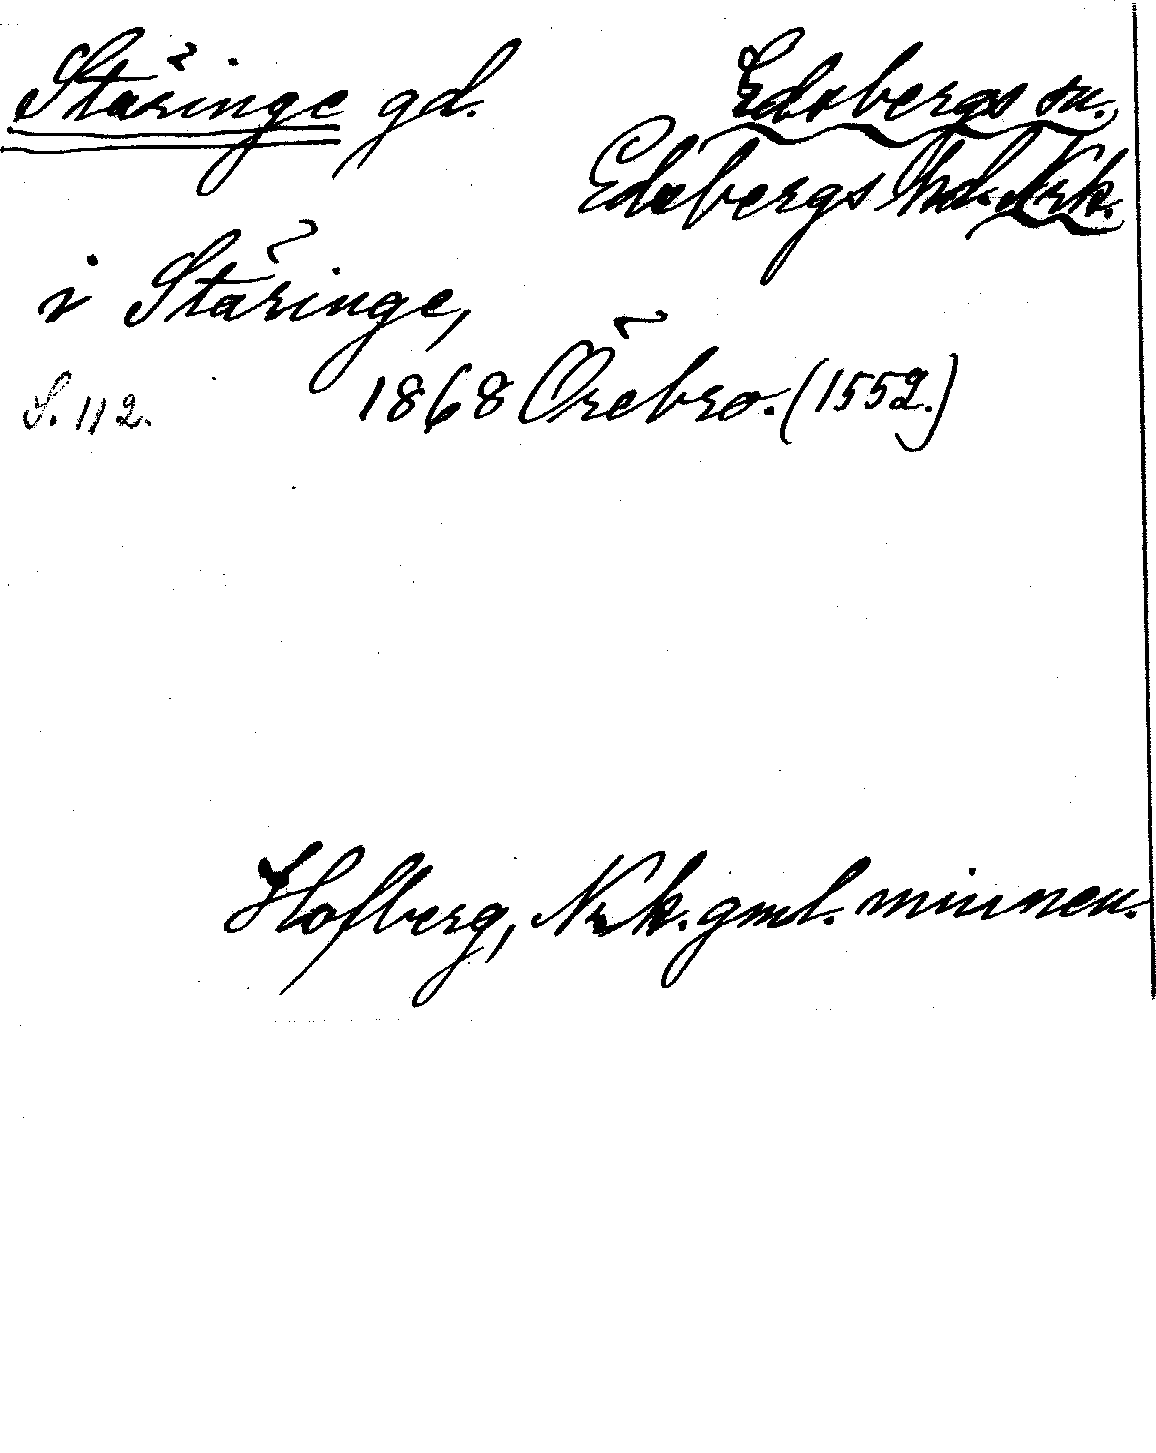 Stäringe gd. Edsbergs sn.
Edsbergs hd. Nrk.
i Stäringe,
S. 112. 1868 Örebro. (1552.)
Hofberg, Nrk. gml. minnen.